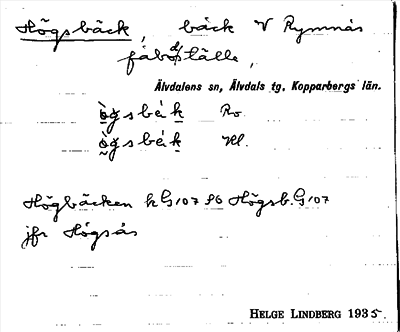 Högsbäck, bäck V Rymnäs
fäbodställe,
Älvdalens sn, Älvdals tg. Kopparbergs län.
ògsbek Ro
ògsbek Hl.
Högbäcken kG107 96 Högsb. G107
jfr Högsås
HELGE LINDBERG 1935.